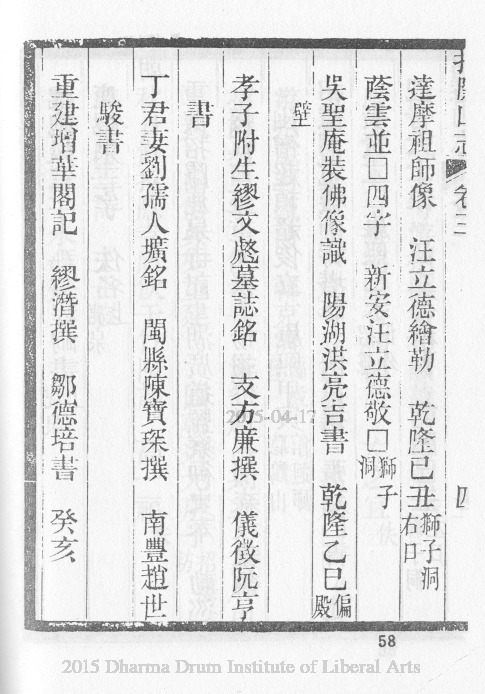 卷三 四
達摩祖師像 汪立德繪勒 乾隆己丑 獅子洞右口
蔭雲並□四字 新安汪立德敬□ 獅子洞
吳聖庵裝佛像識 陽湖洪亮吉書 乾隆乙巳 偏殿
壁
孝子附生繆文彪墓誌銘 支方廉撰 儀徵阮亨
書
丁君妻劉孺人壙銘 閩縣陳寶琛撰 南豐趙世
駿書
重建增華閣記 繆潛撰 鄒德培書 癸亥
58
2005-04-17
2015 Dharma Drum Institute of Liberal Arts